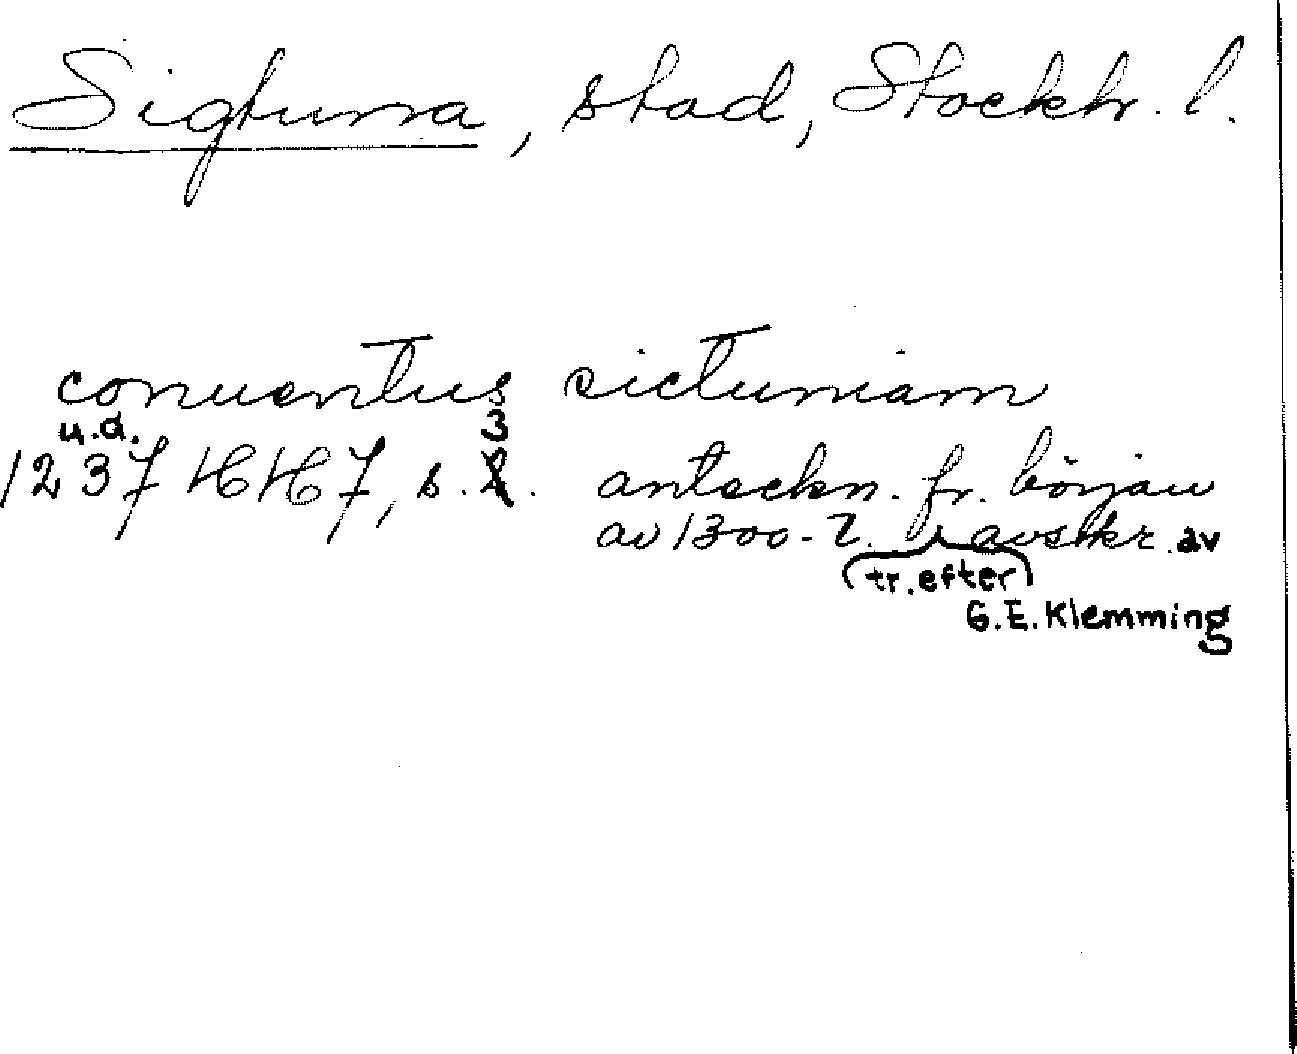 Sigtuna, stad, Stockh. l.
conuentus sictuniam
u.å. 3
1237 HH 7, s. anteckn. fr. början
av 1300-t. i avskr. av
(tr. efter)
G.E. Klemming